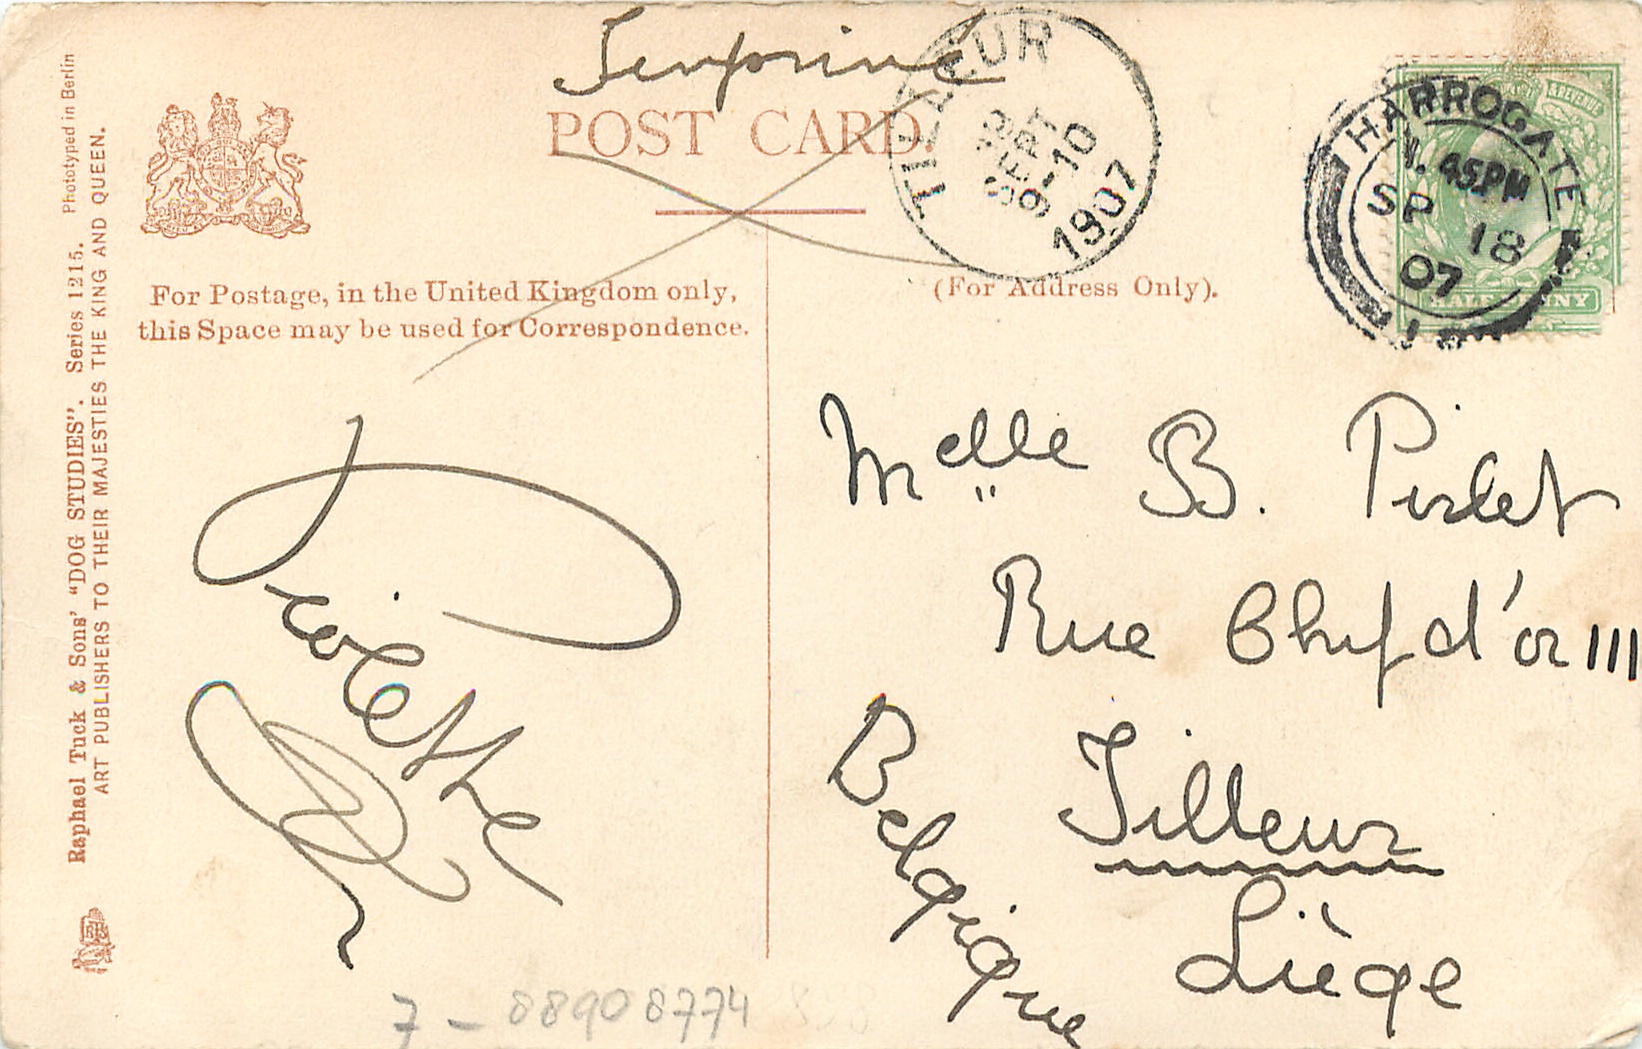 POST CARD.
TILLEUR
SEPT
9-10
1907
HARROGATE
45PM
SP 18
07
& REVENUE
HALF PENNY
For Postage, in the United Kingdom only,
this Space may be used for Correspondence.
(For Address Only).
Raphael Tuck & Sons' "DOG STUDIES". Series 1215. Phototyped in Berlin
ART PUBLISHERS TO THEIR MAJESTIES THE KING AND QUEEN.
Violette
Melle B. Pirlet
Rue Chef d'or 111
Tilleur
Liège
Belgique
7 - 88908774